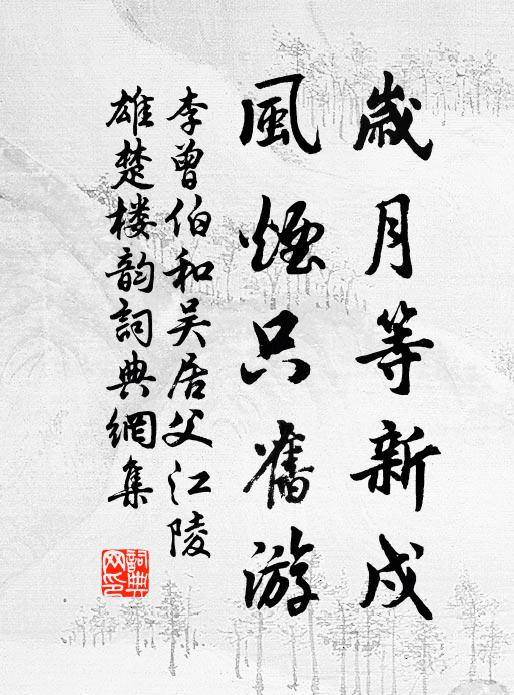 歲月等新戍
風煙只舊游
李曾伯和吴居父江陵
雄楚楼韵詞典網集
詞典網印